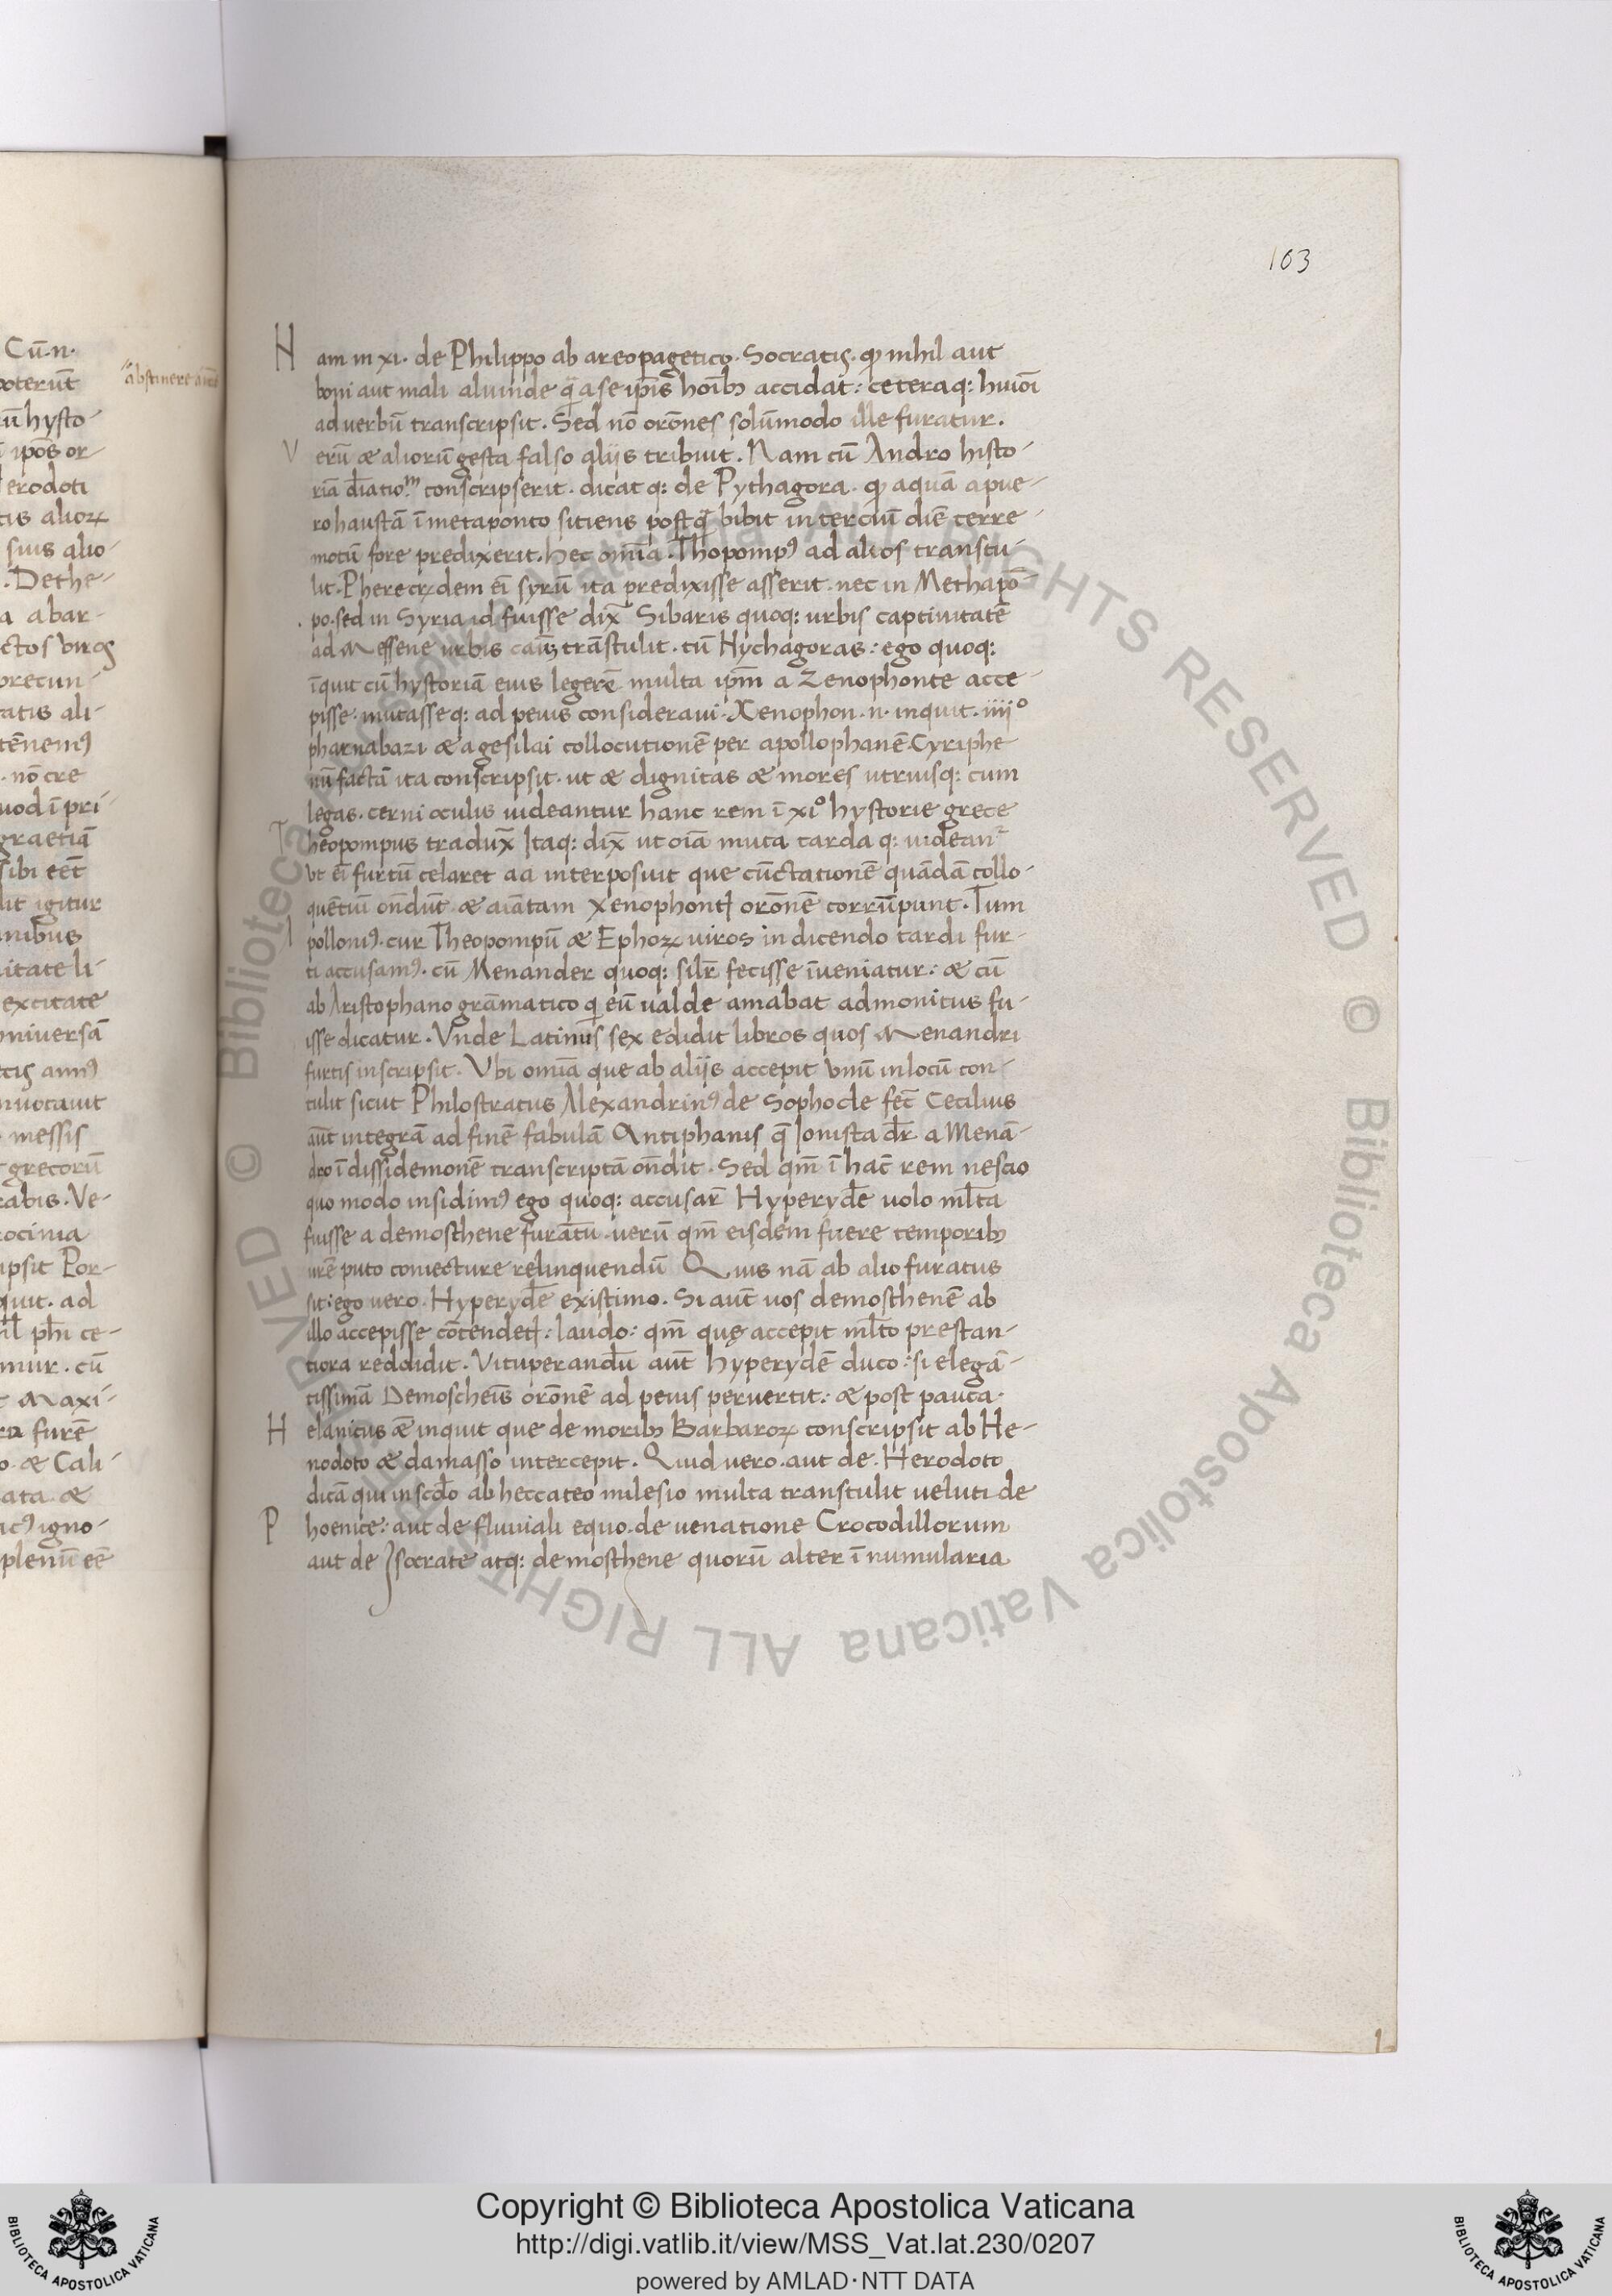 103
Cū.n.
poterūt
abstinere
rū hysto-
ipōs or-
erodoti
suis alio-
. Dethe-
a abar-
ctos viros
precun-
ratis ali-
tēnemꝰ
. nō cre
uod ī pri-
graetiā
sibi eēt
lit igitur
nibus
itate li-
excitate
niversā
messis
grecorū
rabis . Ve-
ocinia
ipsit Por-
quit . ad
mur . cū
Maxi-
ra furē
o . & Cali-
ata . &
icꝰ igno-
plenū eē
Nam in xi. de Philippo ab areopagetico . Socratis . qđ nihil aut
boni aut mali aliunde q̄ a se ip̄is hoīb; accidat : ceteraq: huiōi
ad verbū transcripsit . Sed nō orōnes solūmodo ille furatur .
Verū & aliorū gesta falso aliis tribuit . Nam cū Andro histo-
riā conscripserit . dicat q: de Pythagora . qđ aquā a pue-
ro haustā ī metaponto sitiens postq̄ bibit in terciū diē terre-
motū fore predixerit . hec omīa . Thopompꝰ ad alios transtu-
lit . Pherecydem eī syrū ita predixisse asserit . nec in Methapō-
po . sed in Syria id fuisse dix̄ Sibaris quoq: urbis captivitatē
ad Messene urbis trāstulit . tū Nychagoras : ego quoq:
īquit cū hystoriā eius legerē multa ip̄m a Zenophonte acce-
pisse . mutasse q: ad peius consideravi . Xenophon . n . inquit . iiiiº
pharnabazi & agesilai collocutionē per apollophanē Cyriphe
nū factā ita conscripsit . ut & dignitas & mores utriusq: cum
legas . cerni oculis videantur hanc rem ī xiº hystorie grece
Theopompus tradux̄ Itaq: dix̄ ut oīa muta tarda q: videanᵗ
Ut eī furtū celaret aa interposuit que cūctationē quādā collo-
quētiū ōndūt . & aīatam Xenophontꝭ orōnē corrūpunt . Tum
Apollonꝰ . cur Theopompū & Ephoꝝ viros in dicendo tardi fur-
ti accusamꝰ . cū Menander quoq: silr̄ fecisse īveniatur : & cū
ab Aristophano grāmatico q eū valde amabat admonitus fu-
isse dicatur . Unde Latinus sex edidit libros quos Menandri
furtis inscripsit . Ubi omīa que ab aliis accepit unū in locū con-
tulit sicut Philostratus Alexandrinꝰ de Sophocle fec̄ Cecilius
aūt integrā ad finē fabulā Antiphanis q̄ Ionista dr̄ a Menā-
dro ī dissidemonē transcriptā ōndit . Sed qm̄ ī hac̄ rem nescio
quo modo insidimꝰ ego quoq: accusar̄ Hyperyde volo ml̄ta
fuisse a demosthene furātū . verū qm̄ eisdem fuere temporib;
urē puto coniecture relinquendū Quis nā ab alio furatus
sit : ego vero . Hyperydē existimo . Si aūt vos demosthenē ab
illo accepisse cōtendetꝭ : laudo : qm̄ quę accepit ml̄to prestan-
tiora reddidit . Vituperandū aūt hyperydē duco : si elegā-
tissimā Demosthenis orōnē ad peius pervertit : & post pauca .
Helanicus ēā inquit que de morib; Barbaroꝝ conscripsit ab He-
rodoto & damasso intercepit . Quid vero . aut de . Herodoto
dicā qui in sc̄do ab heccateo milesio multa transtulit veluti de
Phoenice : aut de fluviali equo . de venatione Crocodillorum
aut de Isocrate atq: demosthene quorū alter ī numularia
Copyright © Biblioteca Apostolica Vaticana
http://digi.vatlib.it/view/MSS_Vat.lat.230/0207
powered by AMLAD·NTT DATA
BIBLIOTECA APOSTOLICA VATICANA
BIBLIOTECA APOSTOLICA VATICANA
© Biblioteca Apostolica Vaticana ALL RIGHTS RESERVED © Biblioteca Apostolica Vaticana ALL RIGHTS RESERVED